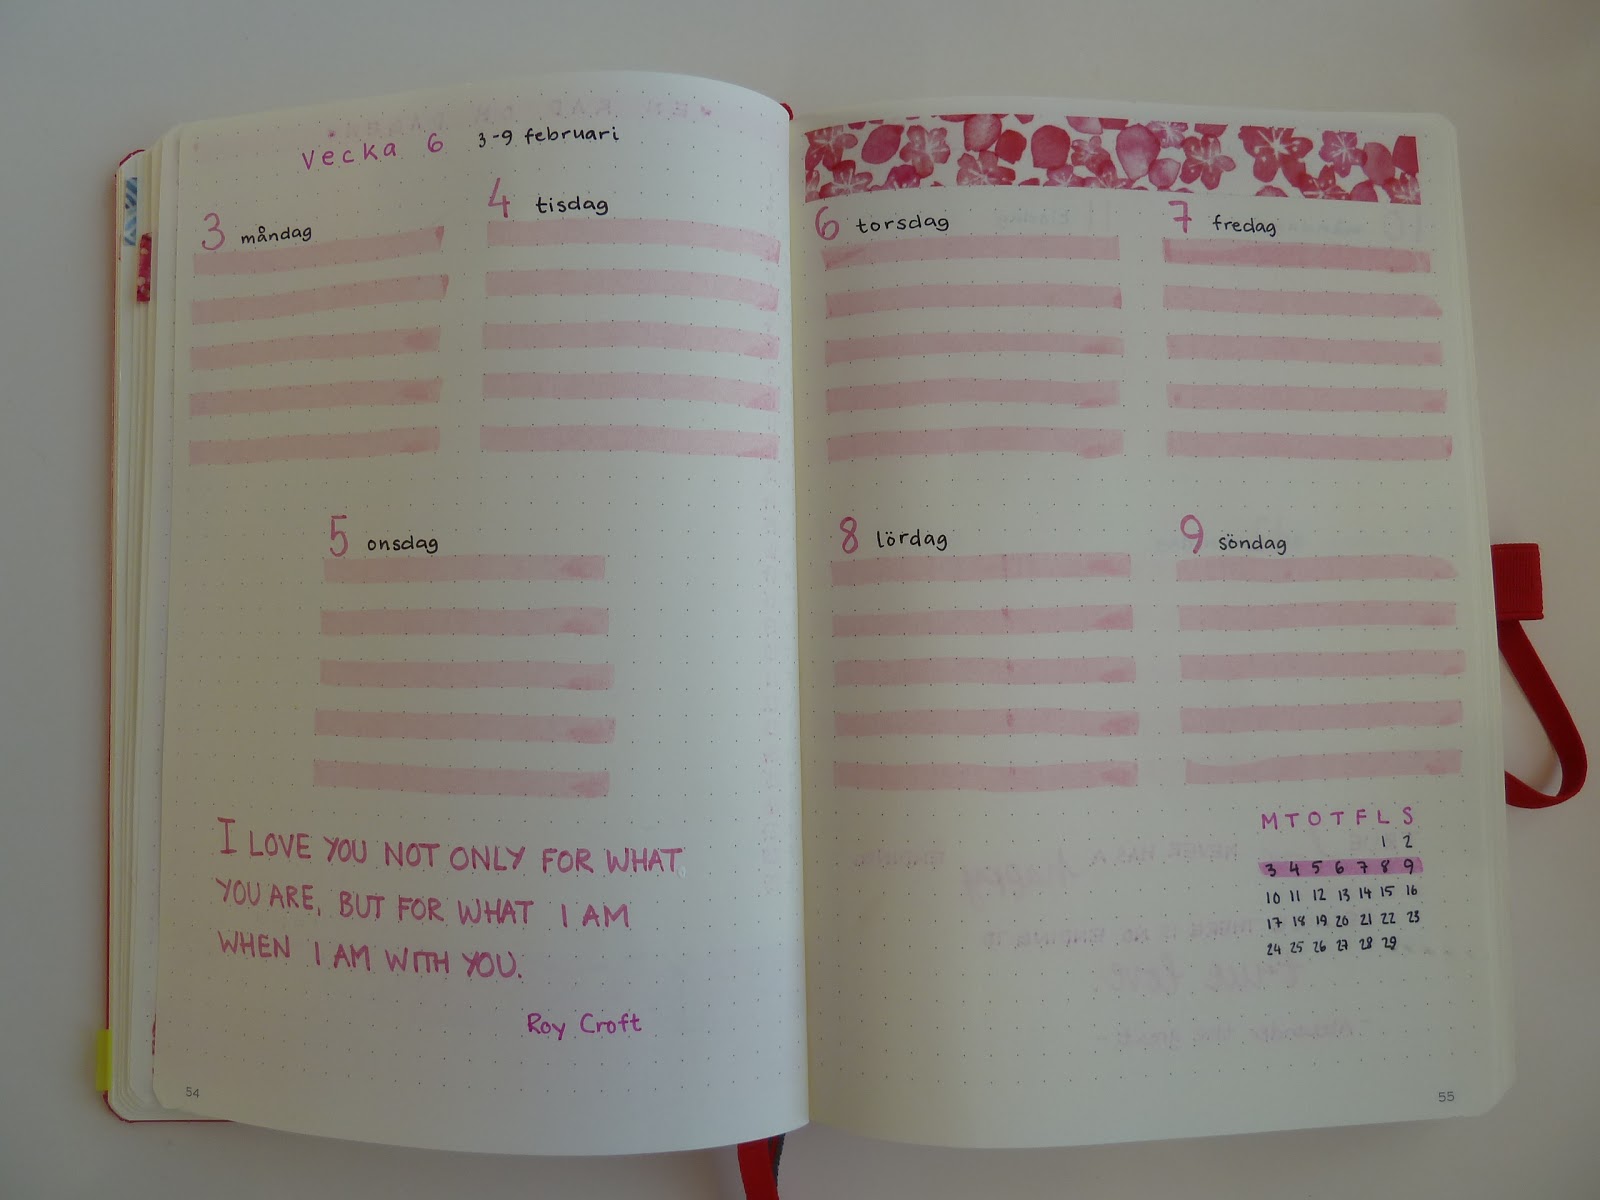 Vecka 6 3-9 februari
3 måndag
4 tisdag
5 onsdag
I LOVE YOU NOT ONLY FOR WHAT
YOU ARE, BUT FOR WHAT I AM
WHEN I AM WITH YOU.
Roy Croft
54
6 torsdag
7 fredag
8 lördag
9 söndag
M T O T F L S
1 2
3 4 5 6 7 8 9
10 11 12 13 14 15 16
17 18 19 20 21 22 23
24 25 26 27 28 29
55